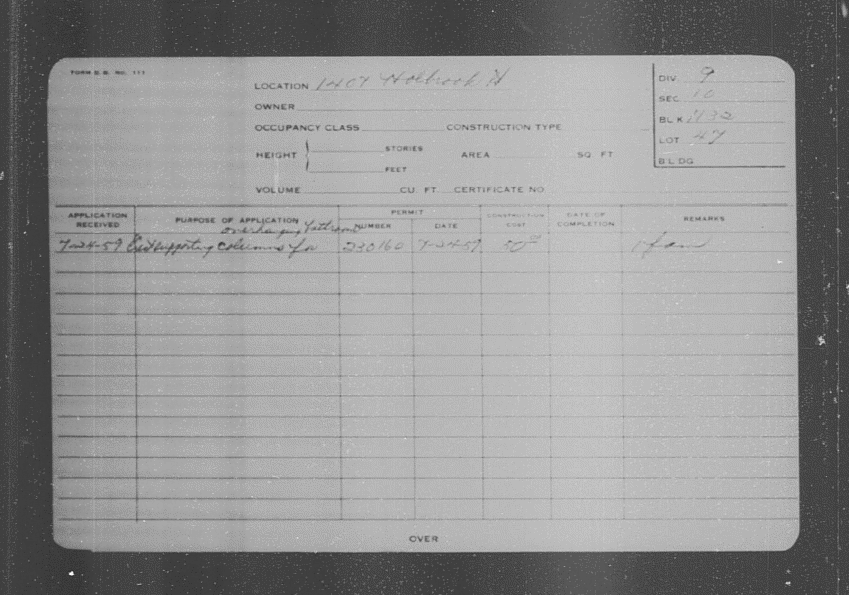 FORM S.B. NO. 111
LOCATION 1407 Holbrook St
OWNER
OCCUPANCY CLASS CONSTRUCTION TYPE
HEIGHT STORIES FEET AREA SQ. FT
VOLUME CU. FT CERTIFICATE NO
DIV. 9
SEC 10
BLK 1132
LOT 47
BLDG
APPLICATION RECEIVED PURPOSE OF APPLICATION PERMIT NUMBER DATE CONSTRUCTION COST DATE OF COMPLETION REMARKS
overhanging bathroom
7-24-59 supporting columns for 230160 7-24-59 50 1 fam
OVER